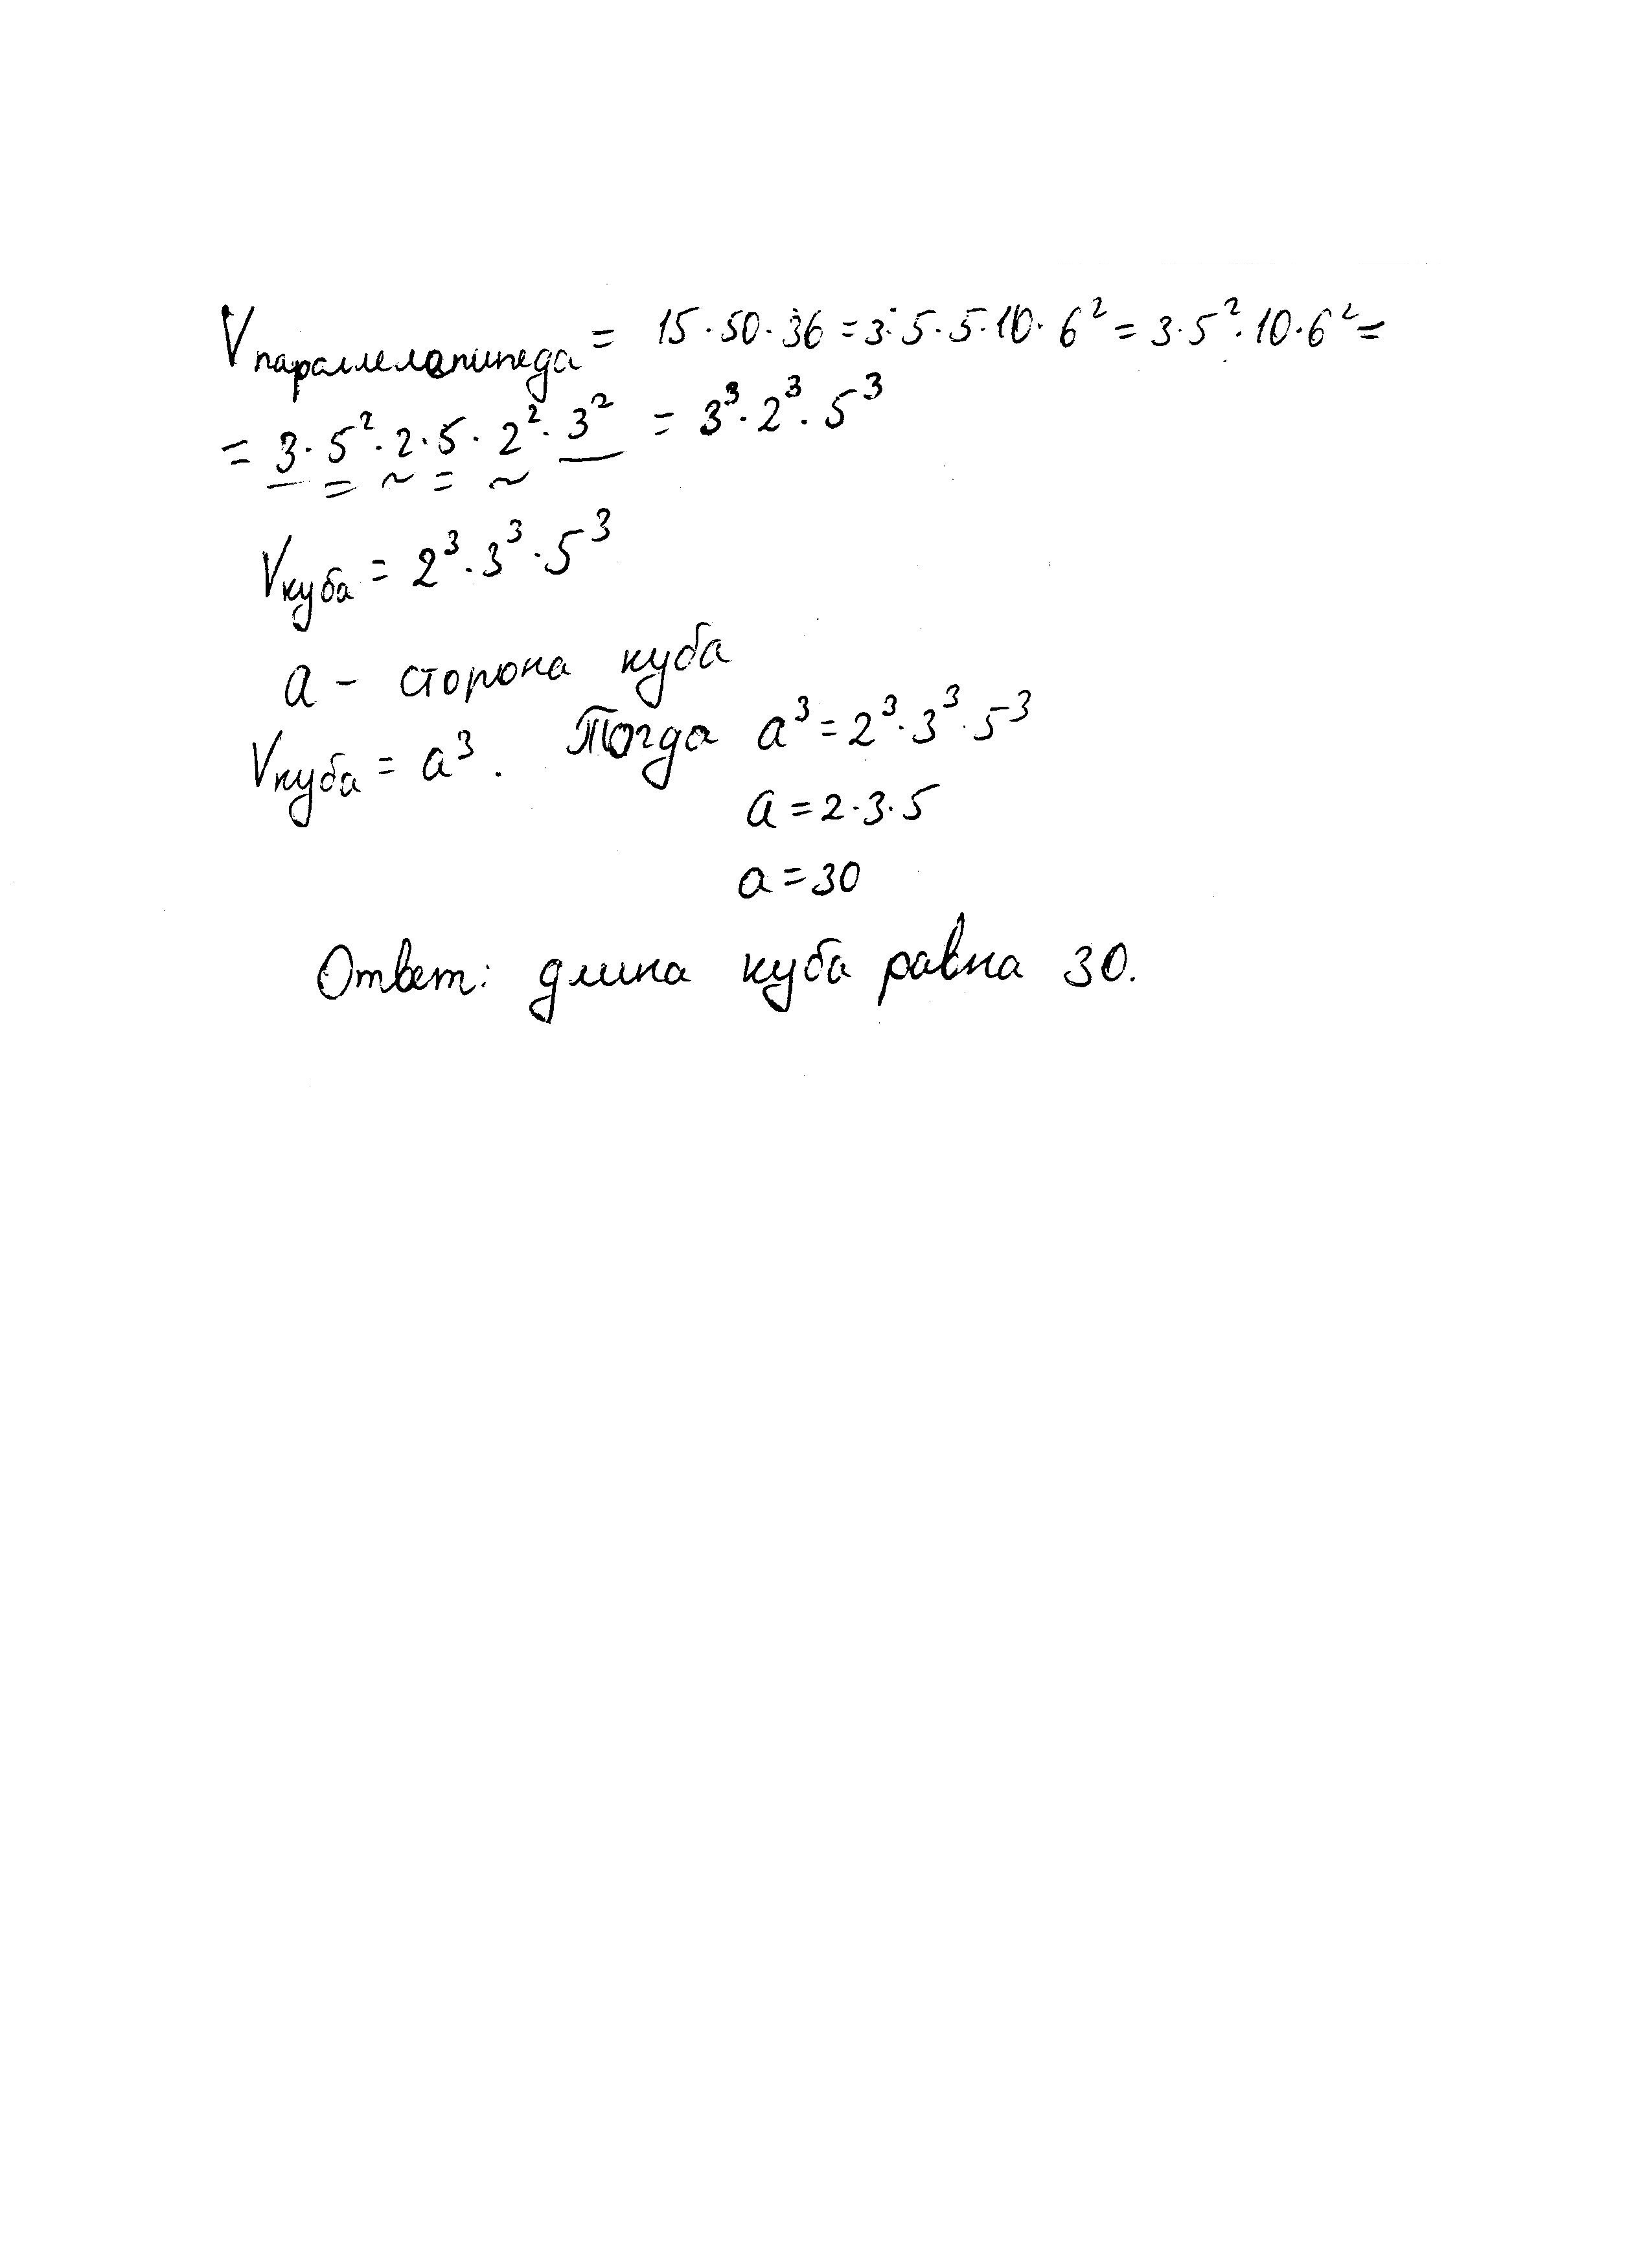 Vпараллелопипеда = 15·50·36 = 3·5·5·10·6² = 3·5²·10·6² =
= 3·5²·2·5·2²·3² = 3³·2³·5³
Vкуба = 2³·3³·5³
a – сторона куба
Vкуба = a³. Тогда a³ = 2³·3³·5³
a = 2·3·5
a = 30
Ответ: длина куба равна 30.